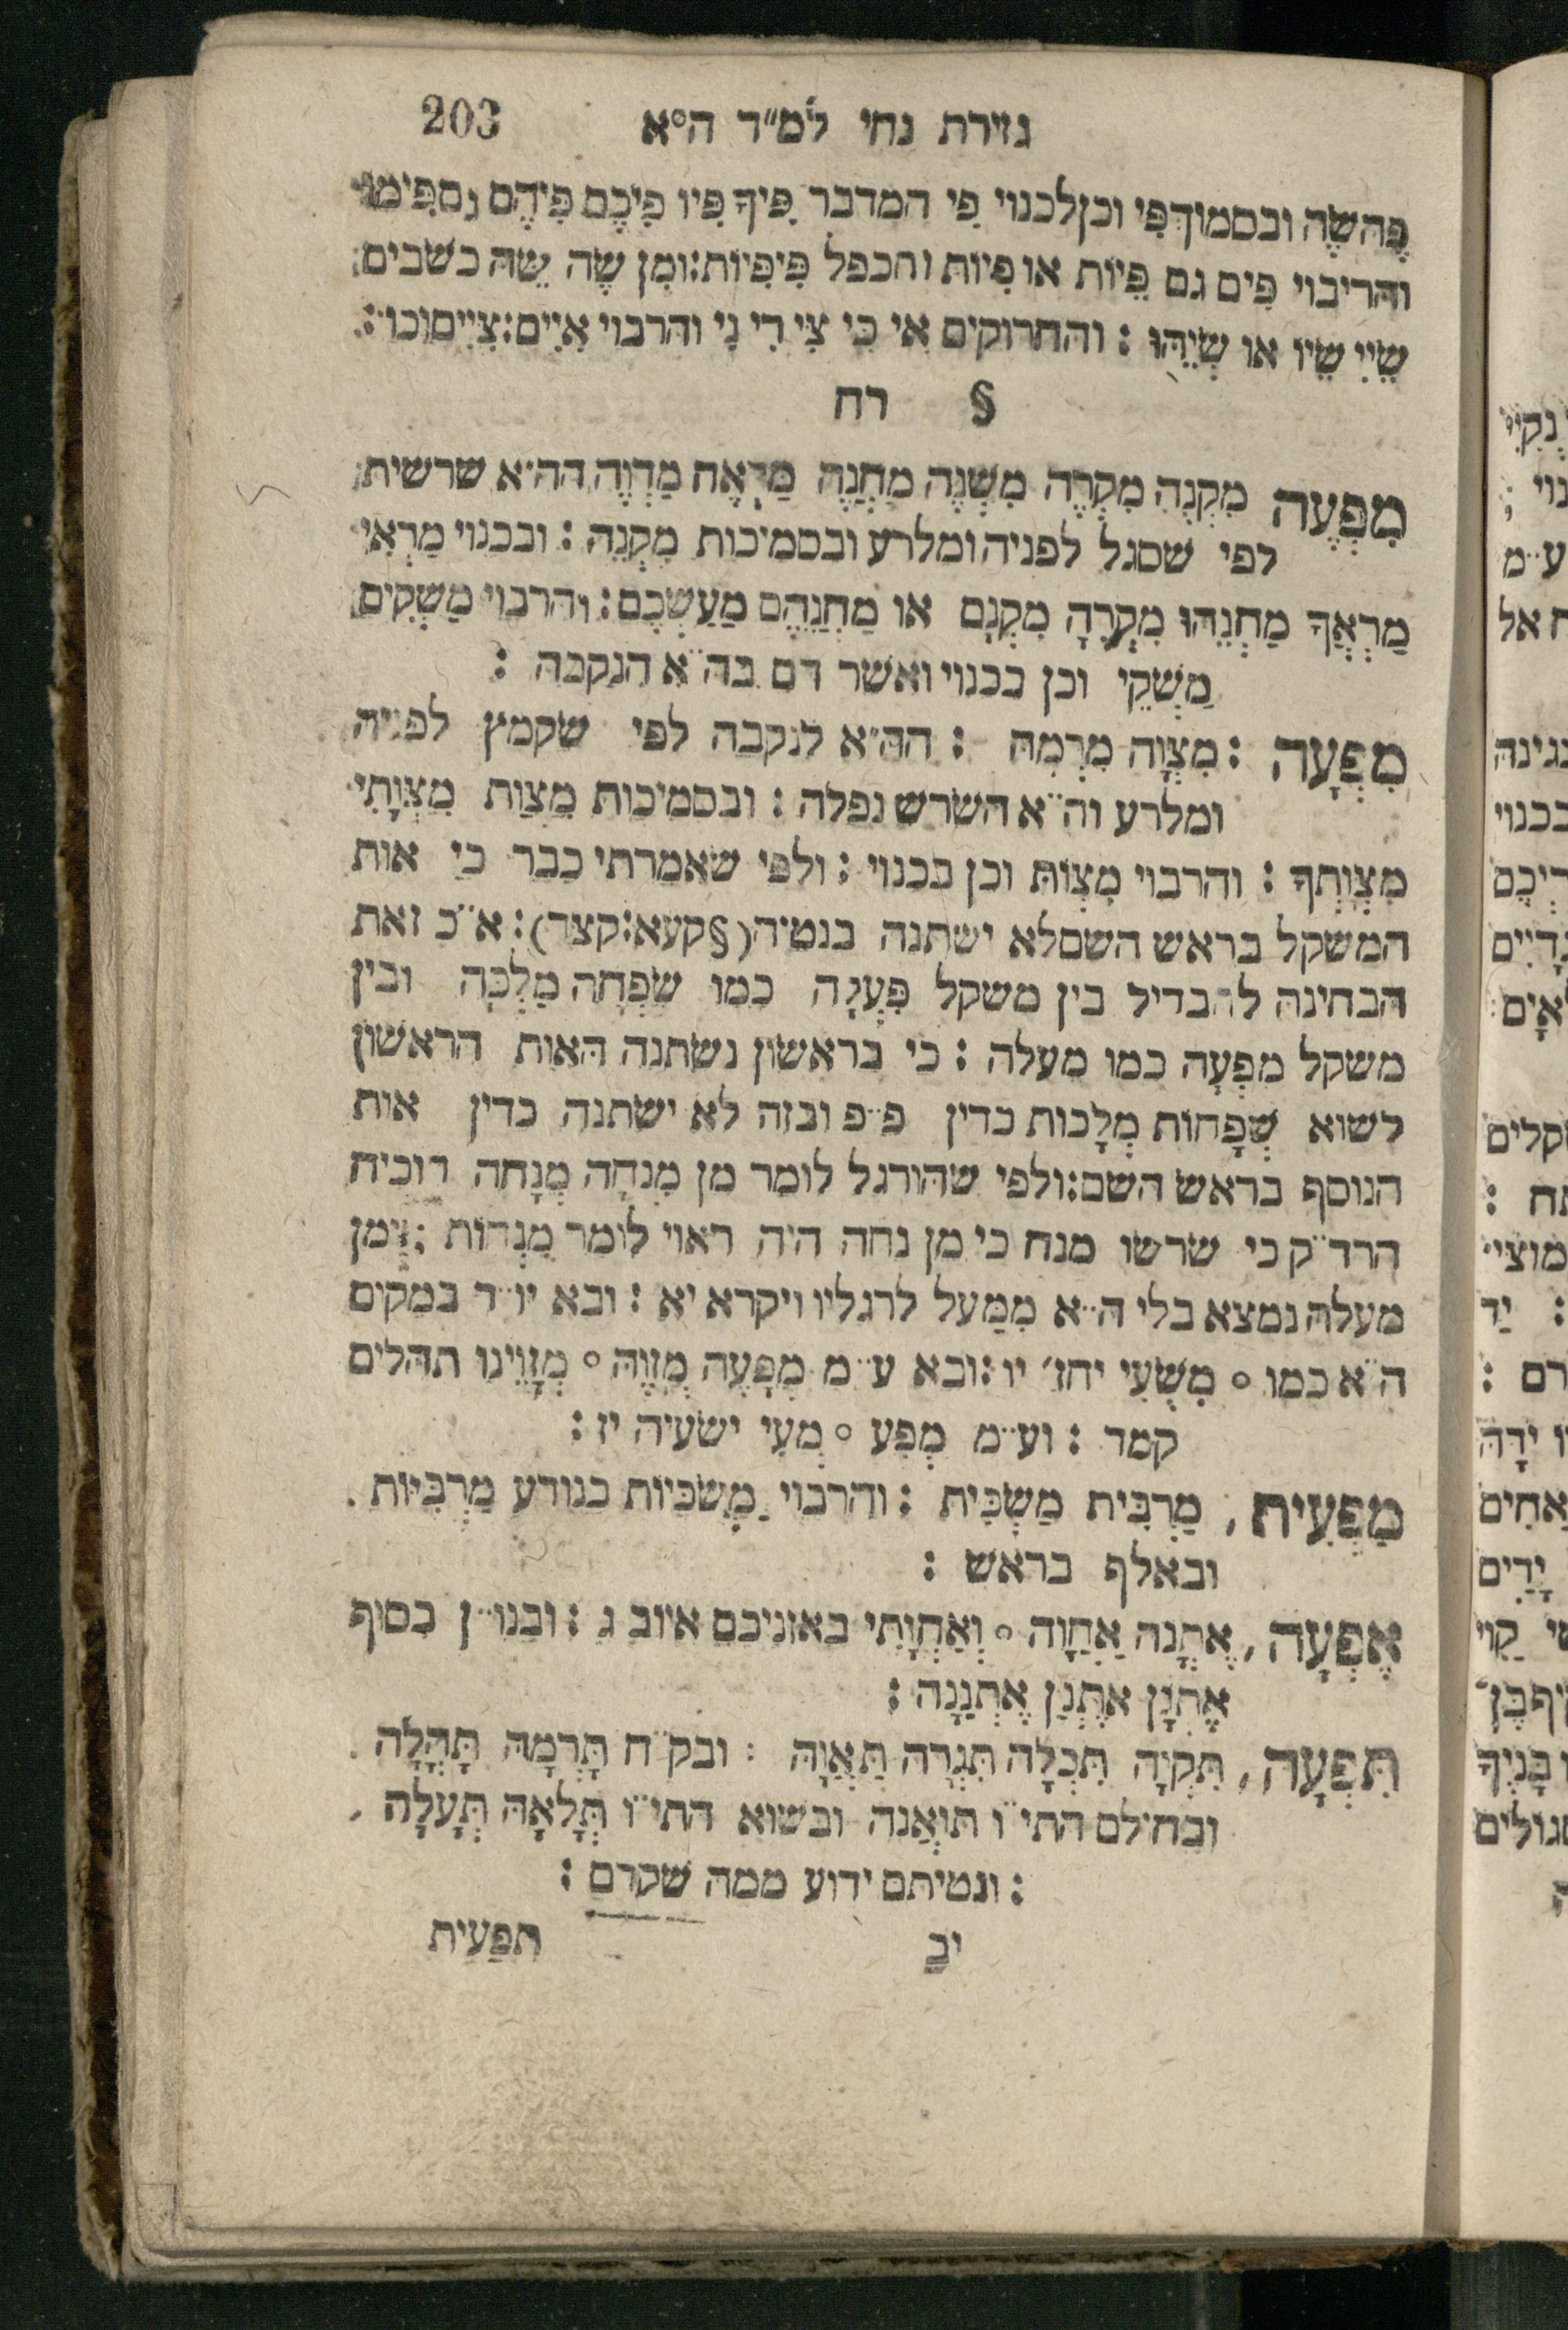 גזירת נחי למ״ד ה°א 203
פֶּה שֶׂה ובסמוך פִּי וכן לכנוי פִּי המדבר פִּיךָ פִּיו פִּיכֶם פִּיהֶם גם פִּימו
והריבוי פִּים גם פֵּיות או פִּיות והכפל פִּיפִיּות : ומן שֶׂה שֵׂה כשבים
שֵׂיִי שֵׂיו או שְׂיֵהוּ : והחרוקים אִי כִּי צִי רִי נִי והרבוי אִיִּים : צִיִּים וכו׳ :
§ רח
מִפְעֶה מִקְנֶה מִקְרֶה מִשְׁנֶה מַחֲנֶה מַרְאֶה מַדְוֶה הה״א שרשית
לפי שסגל לפניה ומלרע ובסמיכות מִקְנֵה : ובכנוי מַרְאִי
מַרְאֲךָ מַחֲנֵהוּ מִקְרֶהָ מִקְנָם או מַחֲנֵהֶם מַעַשְׂכֶם : והרבוי מַשְׁקִים
מַשְׁקֵי וכן בכנוי ואשר הם בה״א הנקבה :
מִפְעָה : מִצְוָה מִרְמָה : הה״א לנקבה לפי שקמץ לפניה
ומלרע וה״א השרש נפלה : ובסמיכות מִצְוַת מִצְוָתִי
מִצְוָתְךָ : והרבוי מִצְוֹת וכן בכנוי : ולפי שאמרתי כבר כי אות
המשקל בראש השם לא ישתנה בנטיה (§ קעא : קצד) : א״כ זאת
הבחינה להבדיל בין משקל פִּעְלָה כמו שִׁפְחָה מַלְכָּה ובין
משקל מפְעָה כמו מעלה : כי בראשון נשתנה האות הראשון
לשוא שְׁפָחוֹת מְלָכות כדין פ״פ ובזה לא ישתנה כדין אות
הנוסף בראש השם : ולפי שהורגל לומר מן מִנְחָה מְנָחה הוכיח
הרד״ק כי שרשו מנח כי מן נחה היה ראוי לומר מִנְחות : ומן
מעלה נמצא בלי ה״א מִמַּעל לרגליו ויקרא יא : ובא יו״ד במקום
ה״א כמו ° מִשְׁעִי יחז׳ יו : ובא ע״מ מְפָעֶה מְזָוֶה ° מְזָוֵינוּ תהלים
קמד : וע״מ מְפִע ° מְעִי ישעיה יז :
מַפְעִית , מַרְבִּית מַשְׂכִּית : והרבוי מַשְׂכִּיּות כנודע מַרְבִּיּות .
ובאלף בראש :
אֶפְעָה , אֶתְנָה אַחֲוָה ° וְאַחֲוָתִי באזניכם איוב ג : ובנו״ן בסוף
אֶתְנָן אֶתְנַן אֶתְנַנָּה :
תִּפְעָה , תִּקְוָה תִּכְלָה תִּגְרָה תַּאֲוָה : ובק״ח תָּרְמָה תָּהֳלָה .
ובחילם התי״ו תּוֹאֲנה ובשוא התי״ו תְּלָאָה תְּעָלָה ,
: ונטיתם ידוע ממה שקדם :
יב תפעית